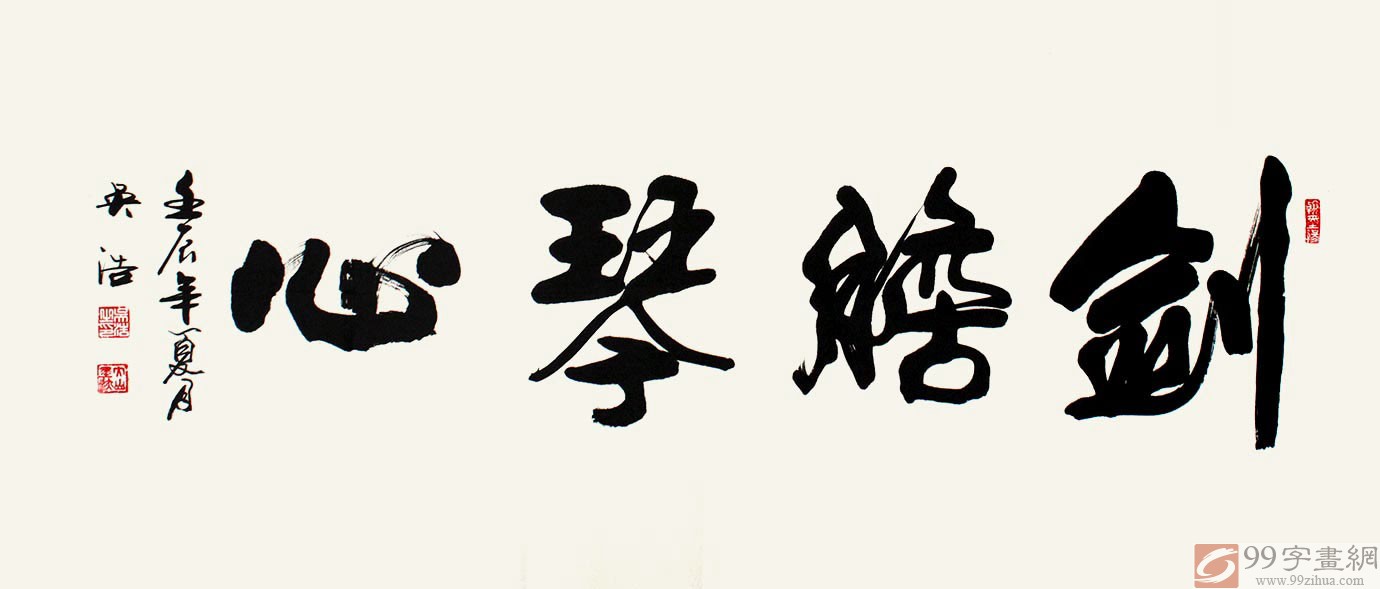 剑胆琴心
壬辰年夏月
吴浩
99字畫網
www.99zihua.com